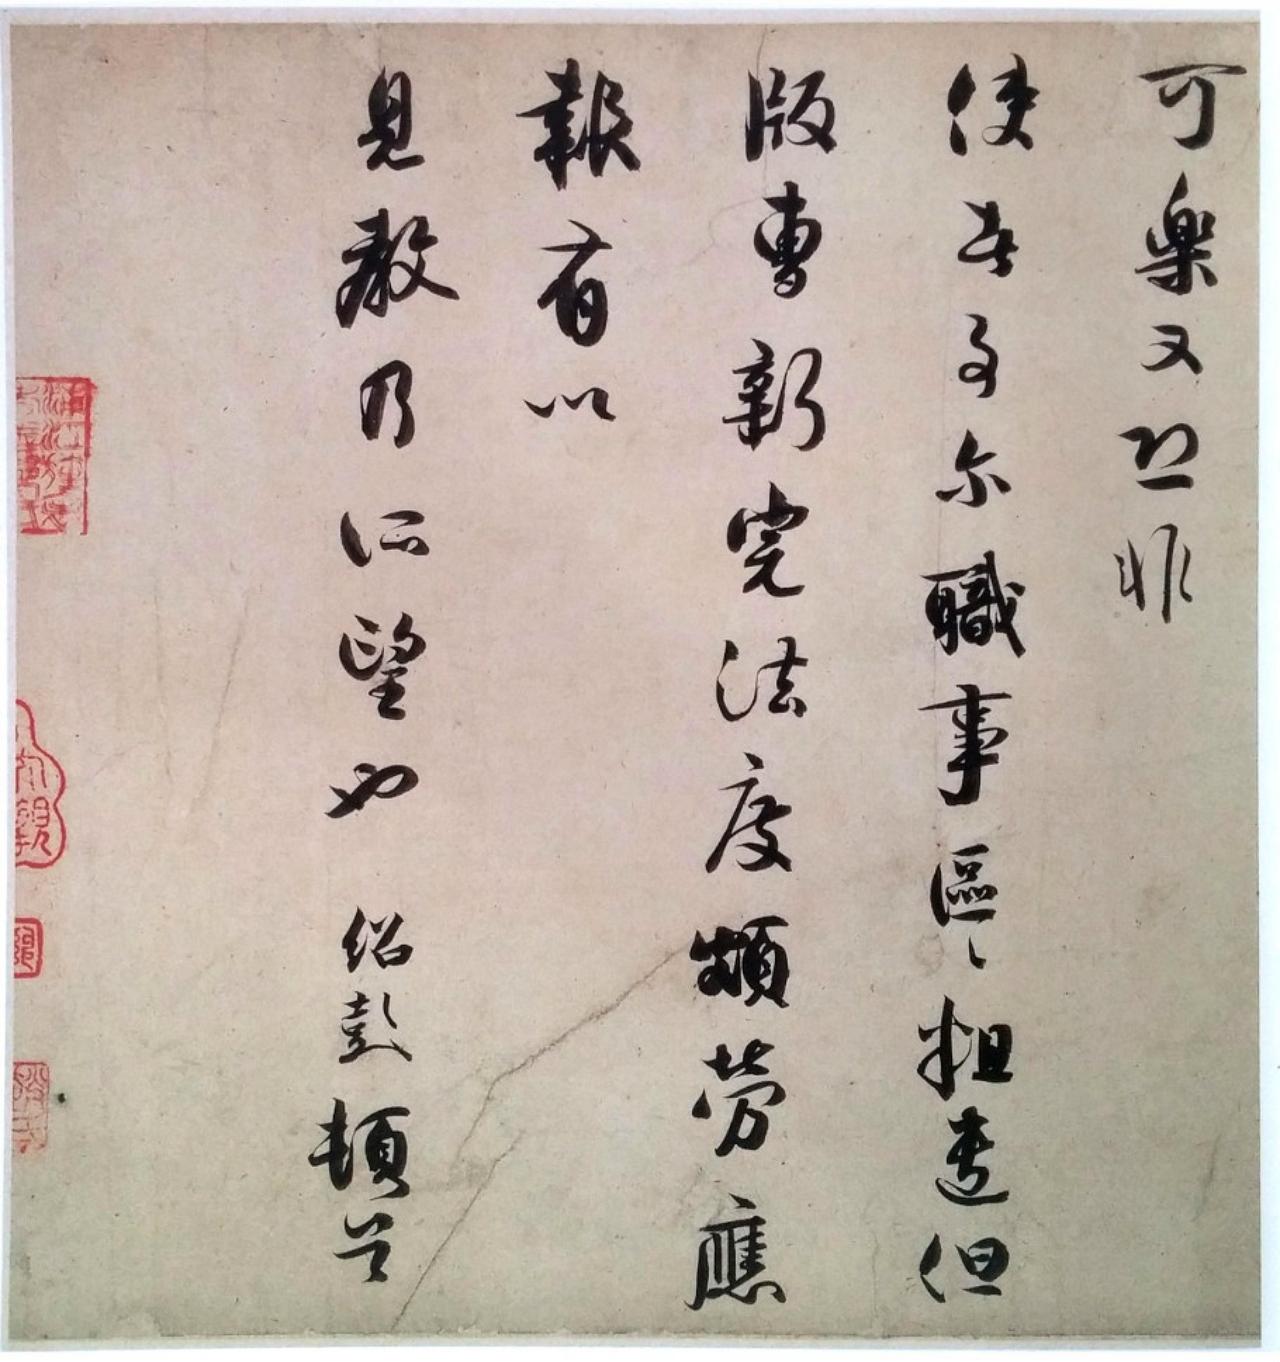 可樂又恐非
使者多尔職事區〻粗遣但
版曹新完法度頗勞應
報有以
見教乃所望也 紹彭頓首